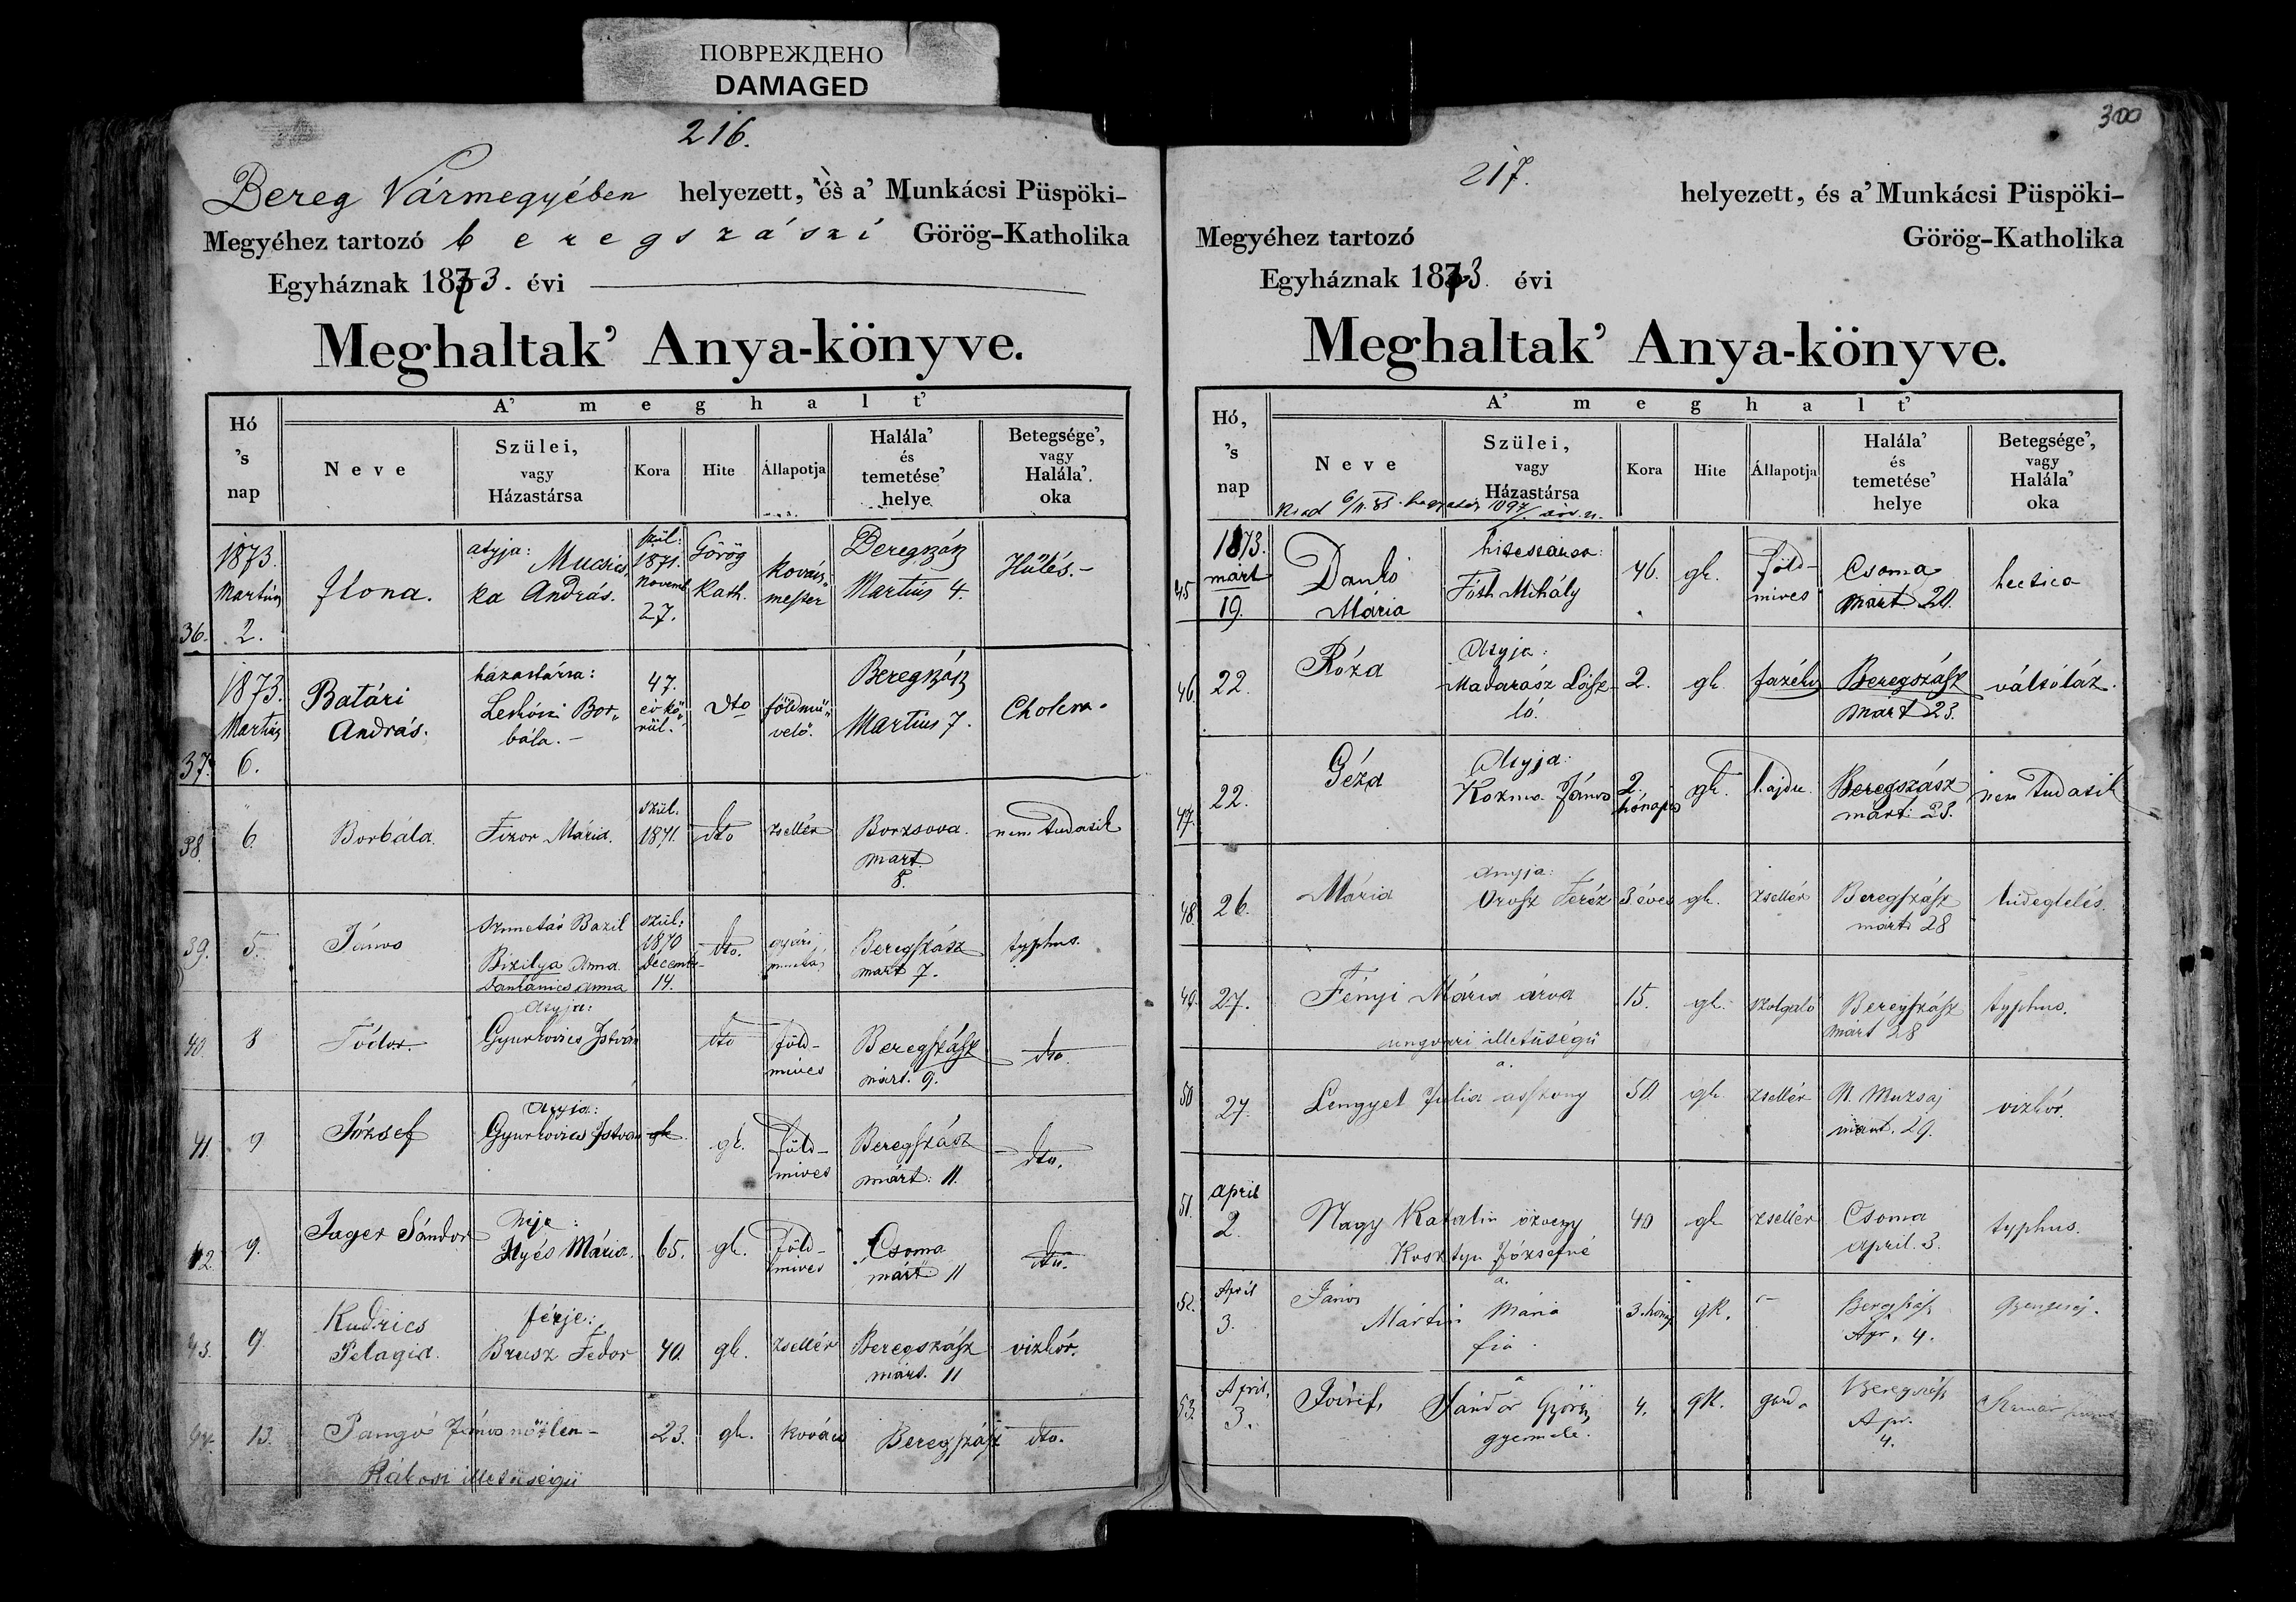 ПОВРЕЖДЕНО
DAMAGED
216.
Bereg Vármegyében helyezett, és a' Munkácsi Püspöki-
Megyéhez tartozó beregszászi Görög-Katholika
Egyháznak 1873. évi
Meghaltak' Anya-könyve.
Hó 's nap
A' meghalt'
Neve
Szülei, vagy Házastársa
Kora
Hite
Állapotja
Halála' és temetése' helye
Betegsége', vagy Halála' oka
36. 1873. Martius 2. Ilona. atyja: Mucsicska András. szül: 1871. Novemb 27. Görög Kath. kovácsmester Beregszász Martius 4. Hűtés.-
37. 1873. Martius 6. Batári András. házastársa: Borbála.- 47. év körül. dto földművelő. Beregszász Martius 7. Cholera.
38. 6. Borbála. Fizor Mária. szül. 1871. dto zsellér Borzsova. mart. 8. nem tudatik
39. 5. János Bazil Bizilya Anna. Anna szül: 1870 decemb. 14. dto. gyári Beregszász mart 7. typhus.
40. 8 Tódor. Atyja: Gyurkovics István dto földmives Beregszász márt. 9. dto.
41. 9 József Atyja: Gyurkovics István gk. gk. földmives Beregszász márt. 11. dto.
42. 9. Jager Sándor Neje: Ilyés Mária. 65. gk. földmives Csoma márt 11 dto.
43. 9. Kudrics Pelagia. férje: Brusz Fedor 40. gk. zsellér Beregszász márt. 11 vizkór.
44. 13. Pangó János nőtlen- Rákosi illetőségű 23. gk. kovács Beregszász dto.
300
217.
helyezett, és a' Munkácsi Püspöki-
Megyéhez tartozó Görög-Katholika
Egyháznak 1873. évi
Meghaltak' Anya-könyve.
Hó, 's nap
A' meghalt'
Neve
Szülei, vagy Házastársa
Kora
Hite
Állapotja
Halála' és temetése' helye
Betegsége', vagy Halála' oka
45 1873. mart 19. Dankó Mária hitestársa: Tóth Mihály 46. gk. földmives Csoma mart. 20. hectica
46. 22. Róza Atyja: Madarász László. 2. gk. fazékas Beregszász mart 23. váltóláz.
47. 22. Géza Atyja: Kozma János 2. hónapos gk. hajdu Beregszász márt. 23. nem tudatik
48. 26. Mária Anyja: Orosz Teréz 3 éves gk. zsellér Beregszász márt 28 hideglelés.
49. 27. Fényi Mária árva ungvári illetőségű 15. gk. szolgáló Beregszász márt 28 typhus.
50 27. Lengyel Julia asszony 50. gk. zsellér N. Muzsaj márt. 29. vizkór.
51. april 2. Nagy Katalin özvegy Kosztyu Józsefné 40 gk zsellér Csoma april. 3. typhus.
52. April 3. János Mártin Mária fia. 3. hón gk. Beregszász Apr. 4.
53. April. 3. József, Sándor György gyermek. 4. gk. Beregszász Apr. 4.